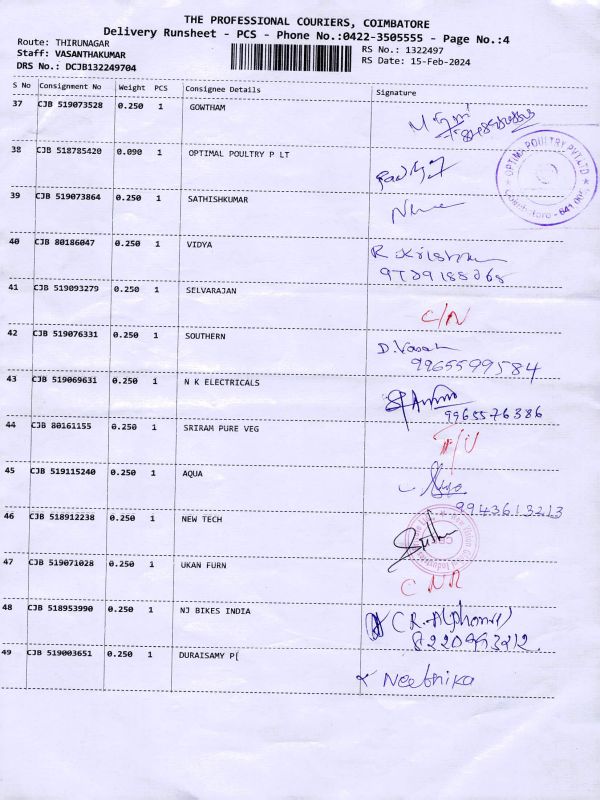 THE PROFESSIONAL COURIERS, COIMBATORE
Delivery Runsheet - PCS - Phone No.:0422-3505555 - Page No.:4
Route: THIRUNAGAR
Staff: VASANTHAKUMAR
DRS No.: DCJB132249704
RS No.: 1322497
RS Date: 15-Feb-2024
S No Consignment No Weight PCS Consignee Details Signature
37 CJB 519073528 0.250 1 GOWTHAM
38 CJB 518785420 0.090 1 OPTIMAL POULTRY P LT
39 CJB 519073864 0.250 1 SATHISHKUMAR
40 CJB 80186047 0.250 1 VIDYA R. Krishnan
41 CJB 519093279 0.250 1 SELVARAJAN C/N
42 CJB 519076331 0.250 1 SOUTHERN D. Vasan
9965599584
43 CJB 519069631 0.250 1 N K ELECTRICALS
9965576386
44 CJB 80161155 0.250 1 SRIRAM PURE VEG
45 CJB 519115240 0.250 1 AQUA
9943613213
46 CJB 518912238 0.250 1 NEW TECH
47 CJB 519071028 0.250 1 UKAN FURN CNR
48 CJB 518953990 0.250 1 NJ BIKES INDIA
49 CJB 519003651 0.250 1 DURAISAMY P[ Neethika